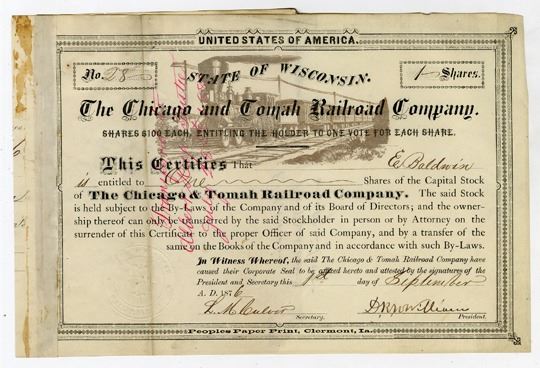 UNITED STATES OF AMERICA.
No. 28
STATE OF WISCONSIN.
1 Shares.
The Chicago and Tomah Railroad Company.
SHARES $100 EACH, ENTITLING THE HOLDER TO ONE VOTE FOR EACH SHARE.
This Certifies That E. Baldwin
is entitled to One Shares of the Capital Stock
of The Chicago & Tomah Railroad Company. The said Stock
is held subject to the By-Laws of the Company and of its Board of Directors; and the owner-
ship thereof can only be transferred by the said Stockholder in person or by Attorney on the
surrender of this Certificate to the proper Officer of said Company, and by a transfer of the
same on the Books of the Company and in accordance with such By-Laws.
In Witness Whereof, the said The Chicago & Tomah Railroad Company have
caused their Corporate Seal to be affixed hereto and attested by the signatures of the
President and Secretary this 1st day of September
A. D. 1876
L. M. Culver
Secretary.
President.
Peoples Paper Print, Clermont, Ia.